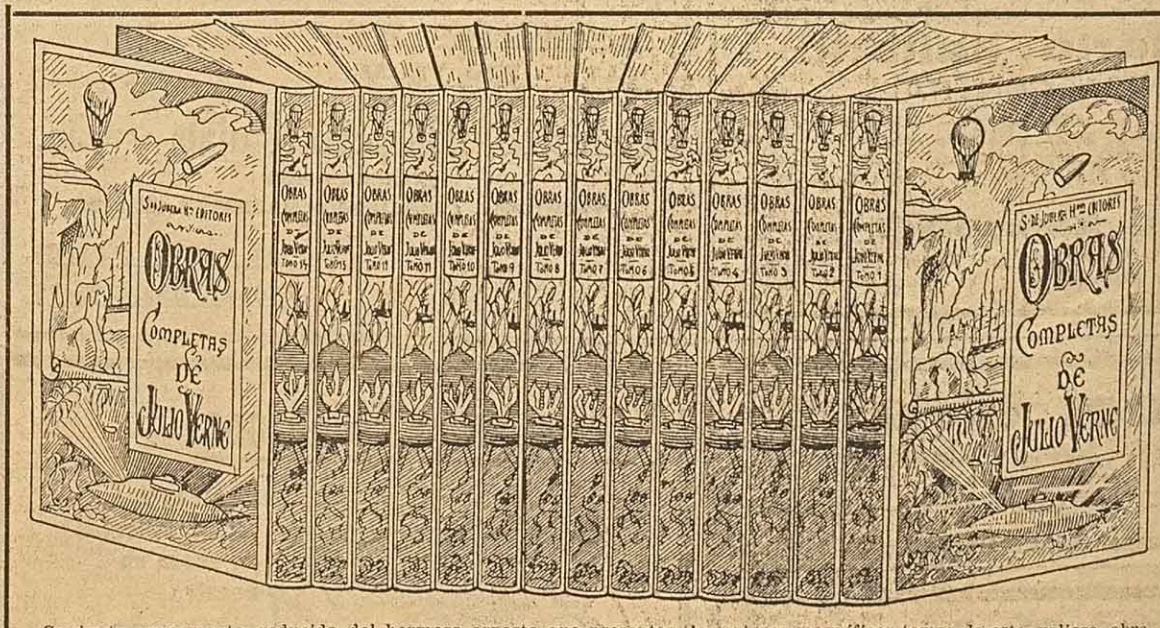 OBRAS
COMPLETAS
DE
JULIO VERNE
OBRAS
COMPLETAS
DE
JULIO VERNE
TOMO 14
OBRAS
COMPLETAS
DE
JULIO VERNE
TOMO 13
OBRAS
COMPLETAS
DE
JULIO VERNE
TOMO 12
OBRAS
COMPLETAS
DE
JULIO VERNE
TOMO 11
OBRAS
COMPLETAS
DE
JULIO VERNE
TOMO 10
OBRAS
COMPLETAS
DE
JULIO VERNE
TOMO 9
OBRAS
COMPLETAS
DE
JULIO VERNE
TOMO 8
OBRAS
COMPLETAS
DE
JULIO VERNE
TOMO 7
OBRAS
COMPLETAS
DE
JULIO VERNE
TOMO 6
OBRAS
COMPLETAS
DE
JULIO VERNE
TOMO 5
OBRAS
COMPLETAS
DE
JULIO VERNE
TOMO 4
OBRAS
COMPLETAS
DE
JULIO VERNE
TOMO 3
OBRAS
COMPLETAS
DE
JULIO VERNE
TOMO 2
OBRAS
COMPLETAS
DE
JULIO VERNE
TOMO 1
S. DE JUBERA Hnos EDITORES
OBRAS
COMPLETAS
DE
JULIO VERNE